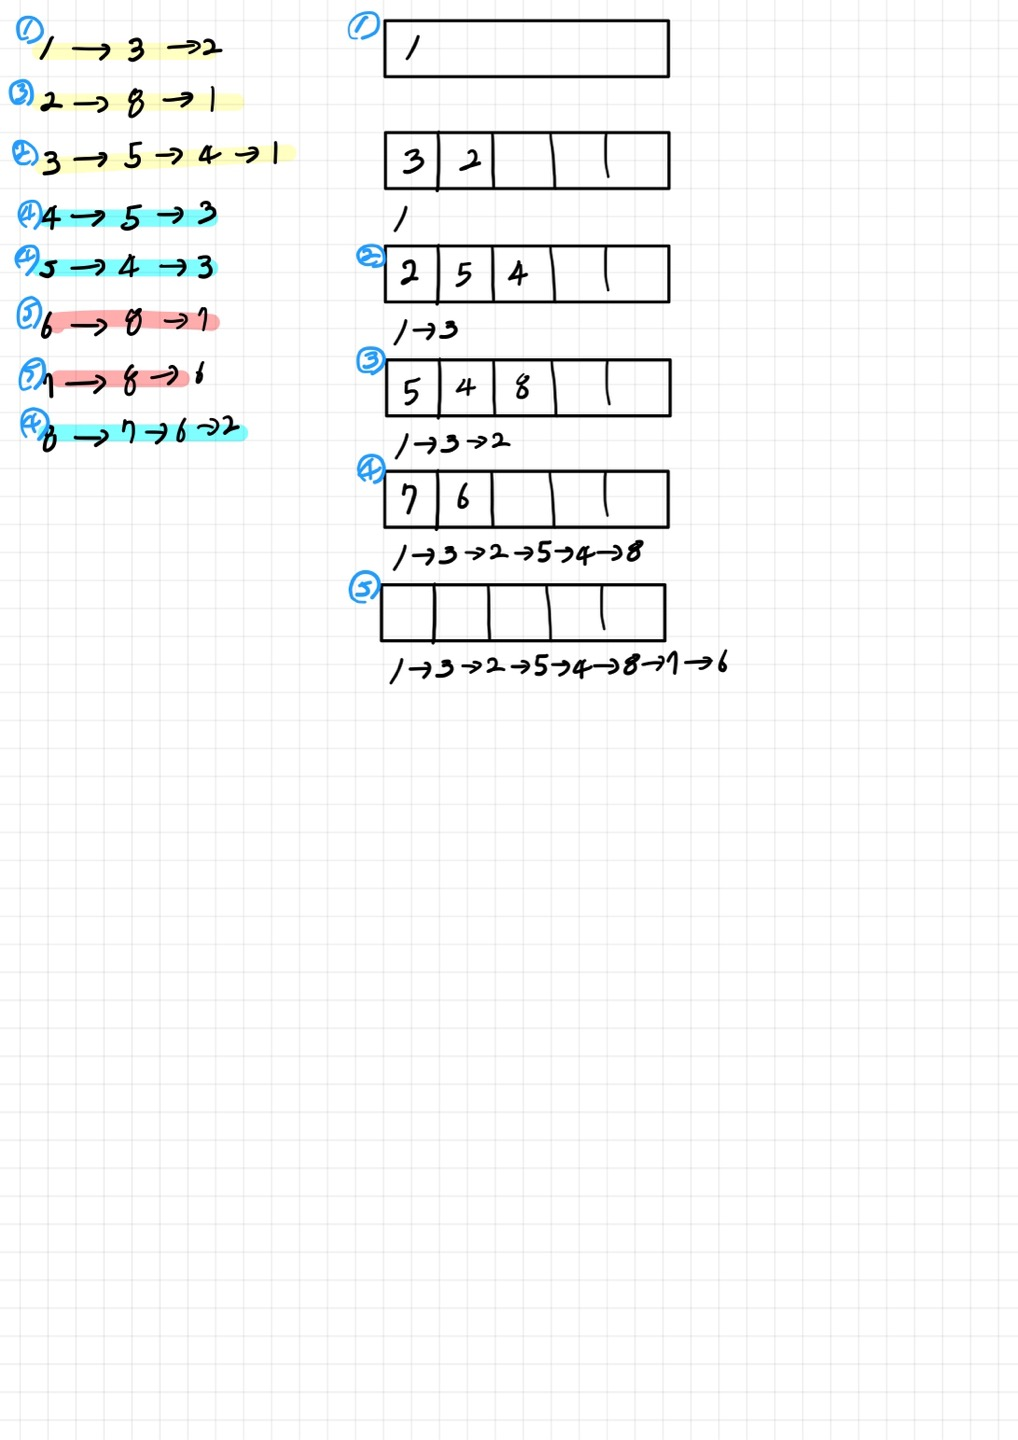 ① 1 → 3 → 2
③ 2 → 8 → 1
② 3 → 5 → 4 → 1
④ 4 → 5 → 3
④ 5 → 4 → 3
⑤ 6 → 8 → 7
⑤ 7 → 8 → 6
④ 8 → 7 → 6 → 2
① 1
3 2
1
② 2 5 4
1 → 3
③ 5 4 8
1 → 3 → 2
④ 7 6
1 → 3 → 2 → 5 → 4 → 8
⑤
1 → 3 → 2 → 5 → 4 → 8 → 7 → 6